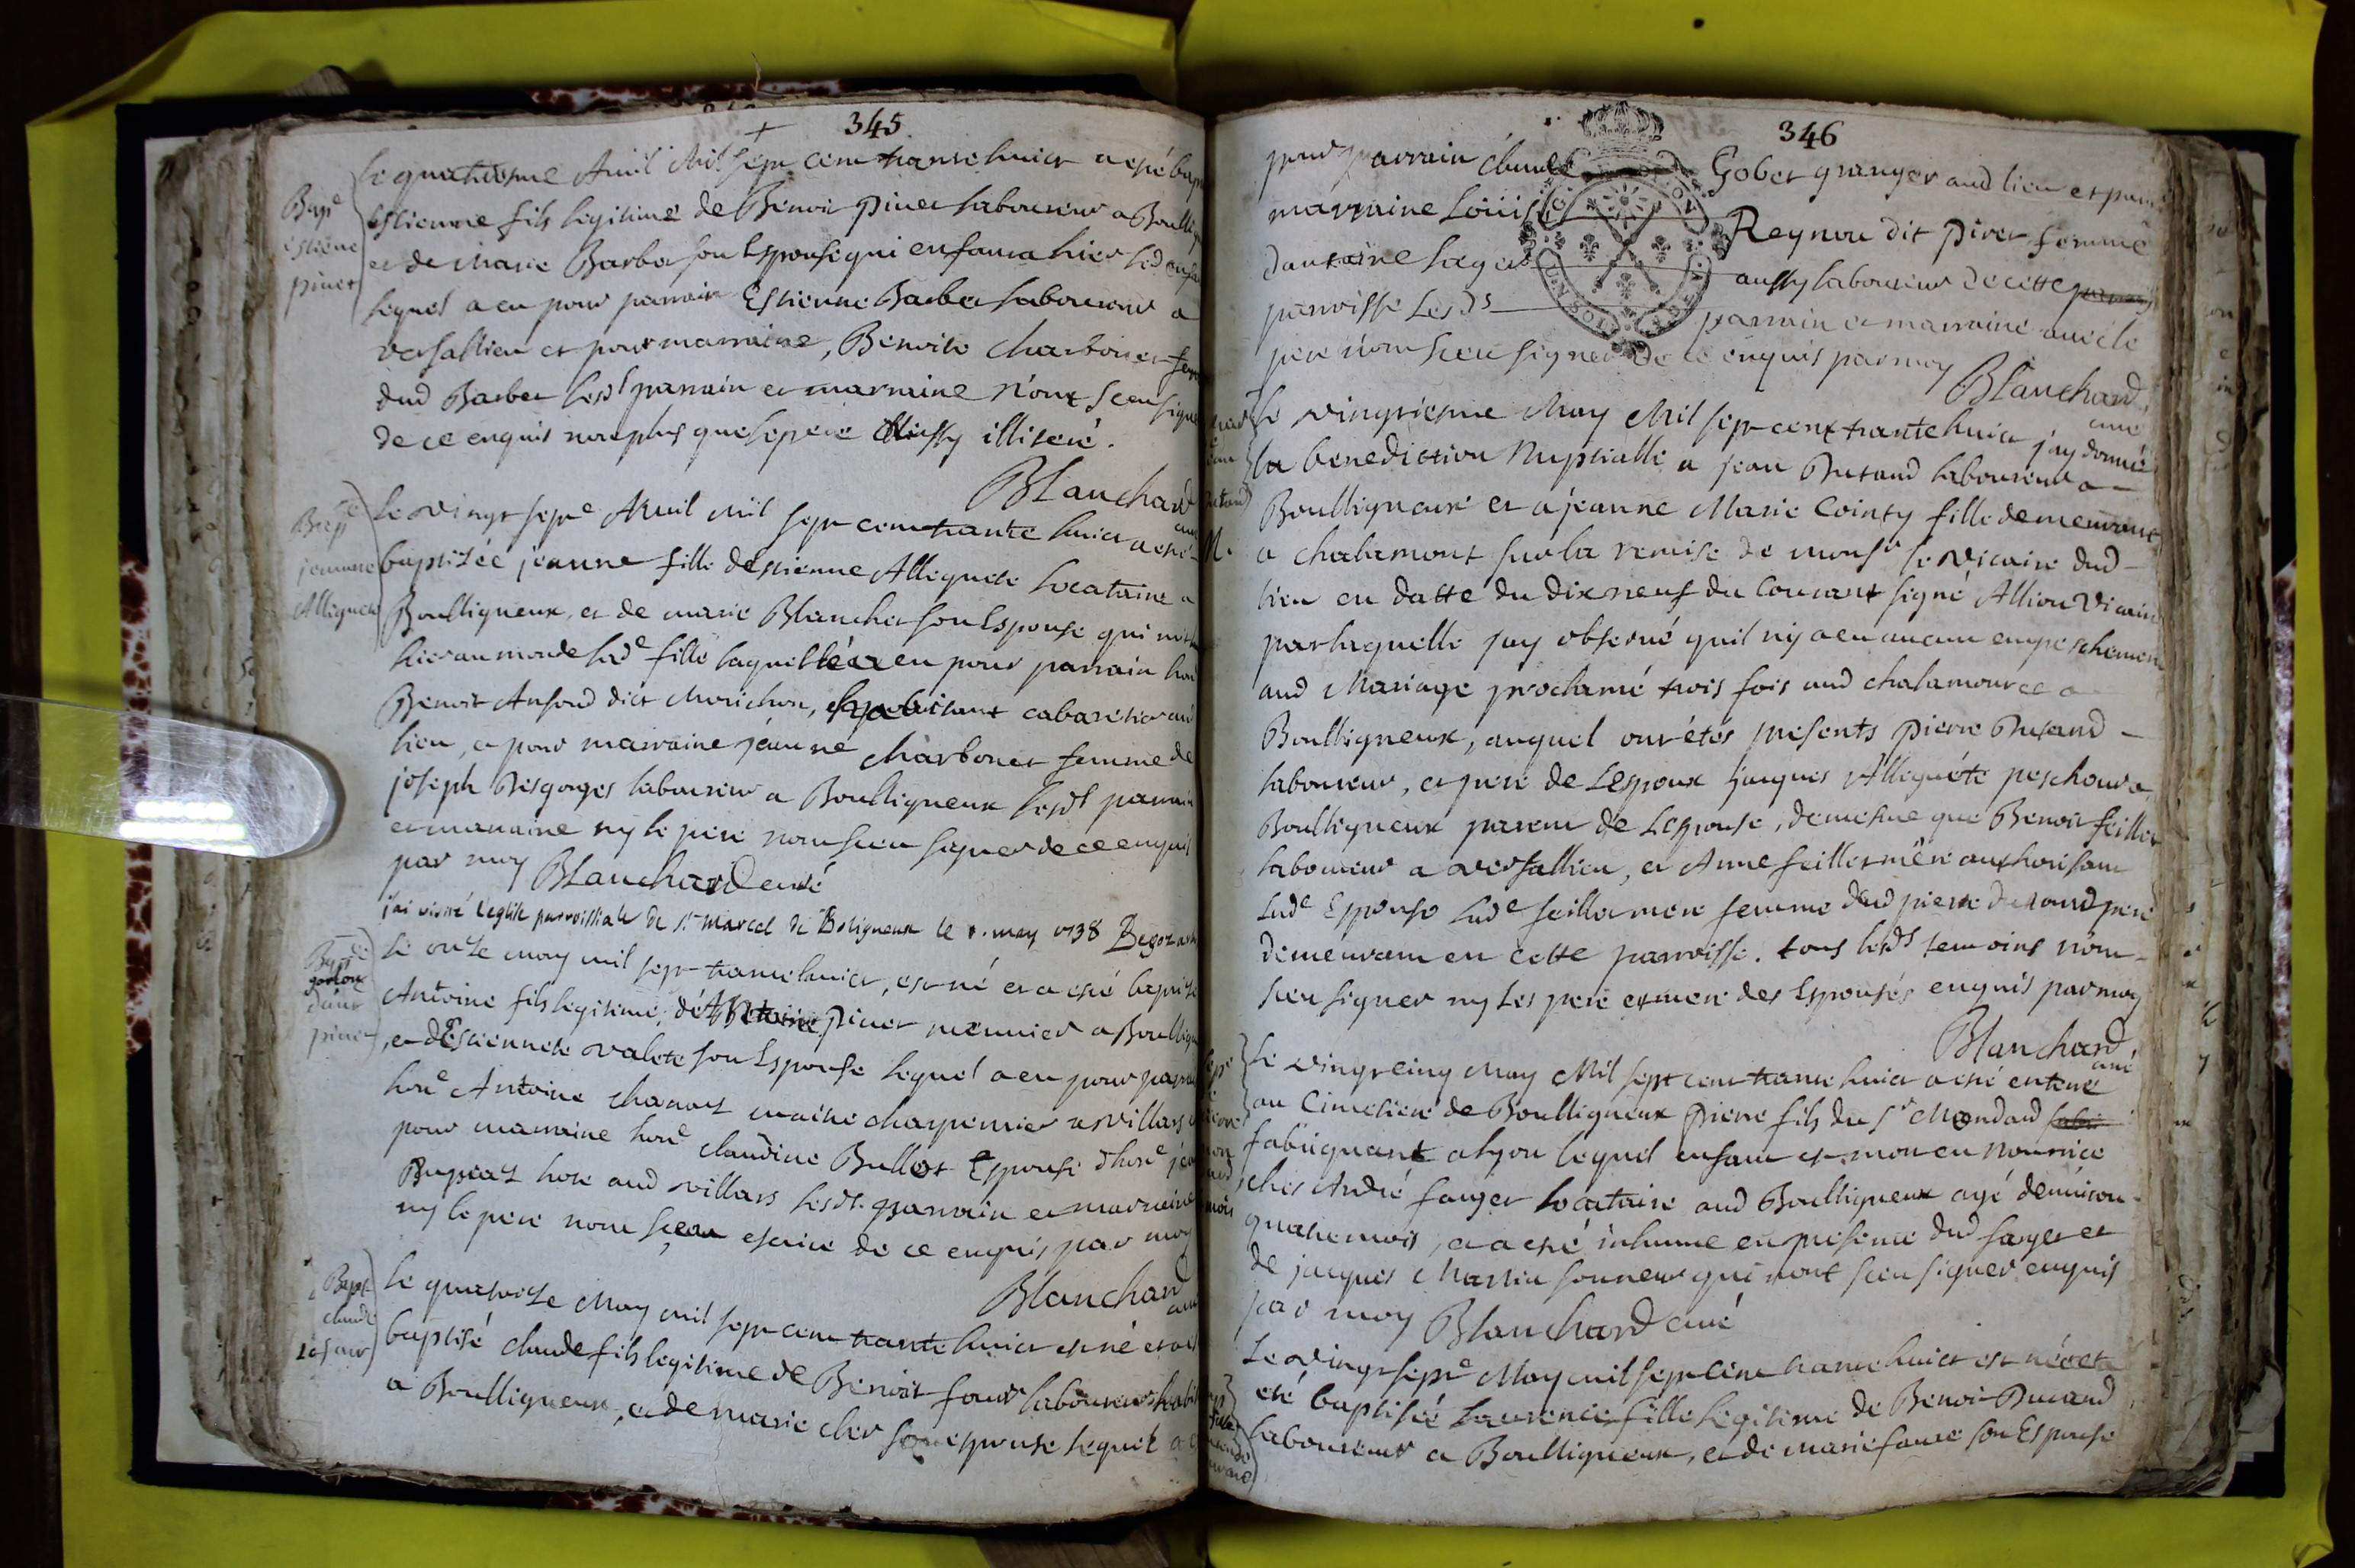 345
le quatriesme Avril Mil sept cent trante huict a esté bap
Bap.e estiene pivet
estienne fils legitime de Benoit Pivet laboureur a Boullig
et de Marie Barbet son Espouse qui enfanta hier led enfa
lequel a eu pour parrain Estienne Barbet laboureur a
versallieu et pour marraine, Benoite charbonet fem
dud Barbet lesd parrain et marraine n'ont sceu signe
de ce enquis nonplus que le pere aussy illiteré.
Blanchard curé
Bap.e jeanne Alliquete
Le vingt sept.e Avril mil sept cent trante huict a esté
baptisée jeanne fille destienne Alliquete Locataire a
Boulligneux, et de marie Blanchet son Espouse qui mit
hier au monde lad.e fille laquelle a eu pour parrain hon
Benoit dict Morichon, habitant cabaretier aud
lieu, et pour marraine jeanne charbonet femme de
joseph Desgorges laboureur a Boulligneux lesd parrain
et marraine ny le pere nont sceu signer de ce enquis
par moy Blanchard curé
j'ai visité l'eglise parroissiale de st marcel de Boligneux le may 1738
Bap.e pivet
le onze may mil sept trante huict, est né et a esté baptize
Antoine fils legitime, de Antoine Pivet meunier a Boullign
, et dEstiennete valete son Espouse lequel a eu pour parra
hon.e Antoine chanay maitre charpentier a villars e
pour marraine hon.e claudine Bullot Espouse dhon.e jea
hote aud villars lesd. parrain et marraine
ny le pere nont sceu escrire de ce enquis par moy
Blanchard curé
Bapt. claude
le quatorze May mil sept cent trante huict est né et a es
baptisé claude fils legitime de Benoit laboureur habit
a Boulligneux, et de marie cler son espouse lequel a e
346
pour parrain claude Gobet granger aud lieu et pour
marraine Loüis Reynou dit Pivet femme
dantoine aussy laboureur de cette
parroisse Lesds parrain et marraine avec le
pere n'ont sceu signer de ce enquis par moy
Blanchard curé
Le vingtiesme May Mil sept cent trante huict j'ay donné
la benediction Nuptialle a jean Durand laboureur a
Boulligneux et a jeanne Marie Cointy fille demeurant
a chalamont sur la remise de mons.r le vicaire dud
lieu en datte du dix neuf du Courant signé Allion vicaire
par laquelle jay observé quil ny a eu aucun empeschement
aud Mariage proclamé trois fois aud chalamont et a
Boulligneux, auquel ont étés presents Pierre Durand
laboureur, et pere de Lespoux jacques Alliquéte pescheur a
Boulligneux parent de Lespouse, de mesme que Benoit feillet
laboureur a versallieu, et Anne feillet mere authorisant
Lad.e Espouse Lad.e feillet mere femme dud pierre durand pere
demeurant en cette parroisse. tous lesds temoins n'ont
sceu signer ny les pere et mere des Espousés enquis par moy
Blanchard curé
Le vingt cinq May Mil sept cent trante huict a esté enterré
au Cimetiere de Boulligneux Pierre fils du s.r Mondand
fabriquant a lyon lequel enfant est mort en nourrice
ches André farget locataire aud Boulligneux agé denviron
quatre mois, et a esté inhumé en presence dud farget et
de jacques Martin sonneur qui n'ont sceu signer enquis
par moy Blanchard curé
Le vingt sept.e May mil sept cent trante huict est née et a
esté baptisée Laurence fille legitime de Benoit Durand
laboureur a Boulligneux, et de marie faure son Espouse